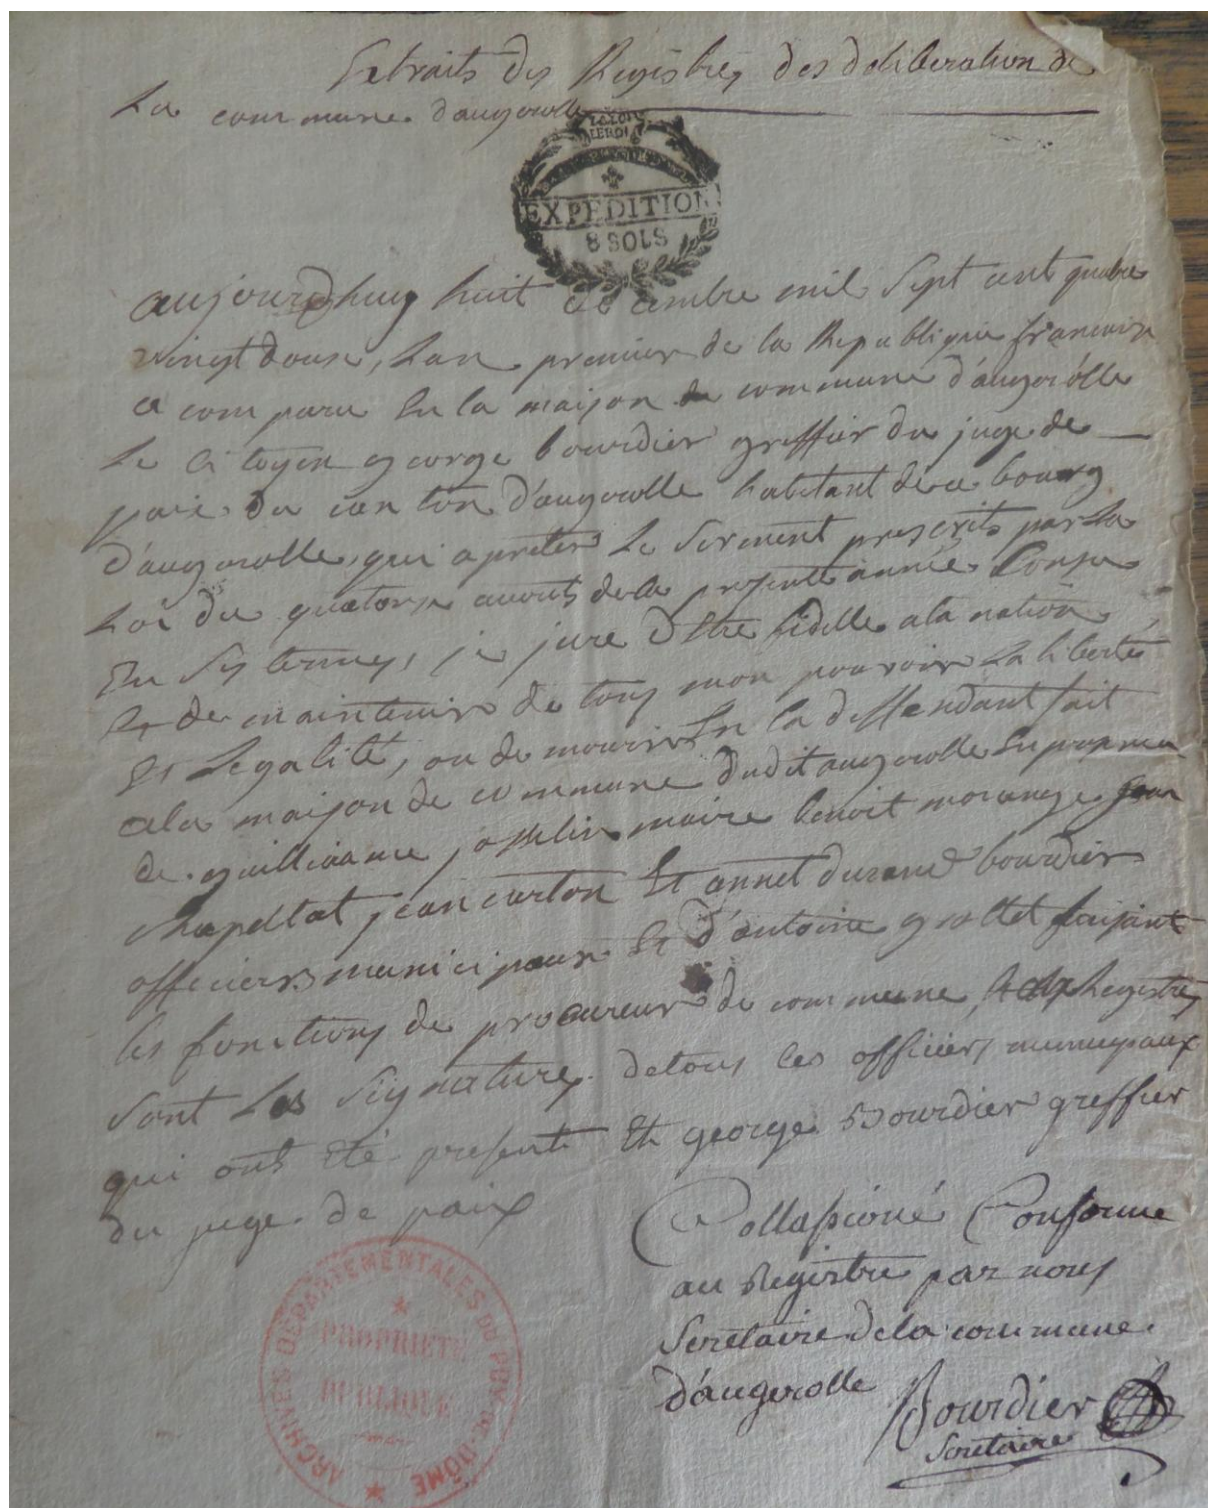 Extraits des Registres des deliberation de
La commune d'augerolle
LA LOI
LE ROI
EXPEDITION
8 SOLS
aujourdhuy huit decembre mil sept cent quatre
vingt douze, Lan premier de la Republique francoise
a comparu En la maison de commune d'augerolle
Le Citoyen george bourdier greffier du juge de
paix du canton d'augerolle habitant de ce bourg
d'augerolle, qui a preter Le serment prescrit par La
Loi du quatorze aouts de la presente année Conçu
En Ses termes, je jure d'Etre fidelle a la nation
Et de maintenir de tous mon pouvoir La liberté
Et Legalité, ou de mourir En la deffendant fait
a la maison de commune dudit augerolle En presence
de guilliaume josselin maire benoit morange jean
chapellat jean carton Et annet durand bourdier
officiers municipaux Et d'antoine grollet faisant
les fonctions de procureur de commune, Registres
Sont Les Signatures de tous les officiers municipaux
qui ont Eté present Et george Bourdier greffier
du juge de paix
Collassioné Conforme
au Registre par nous
Secretaire de la commune
d'augerolle
Bourdier
Secretaire
ARCHIVES DEPARTEMENTALES DU PUY-DE-DÔME
PROPRIETE
PUBLIQUE